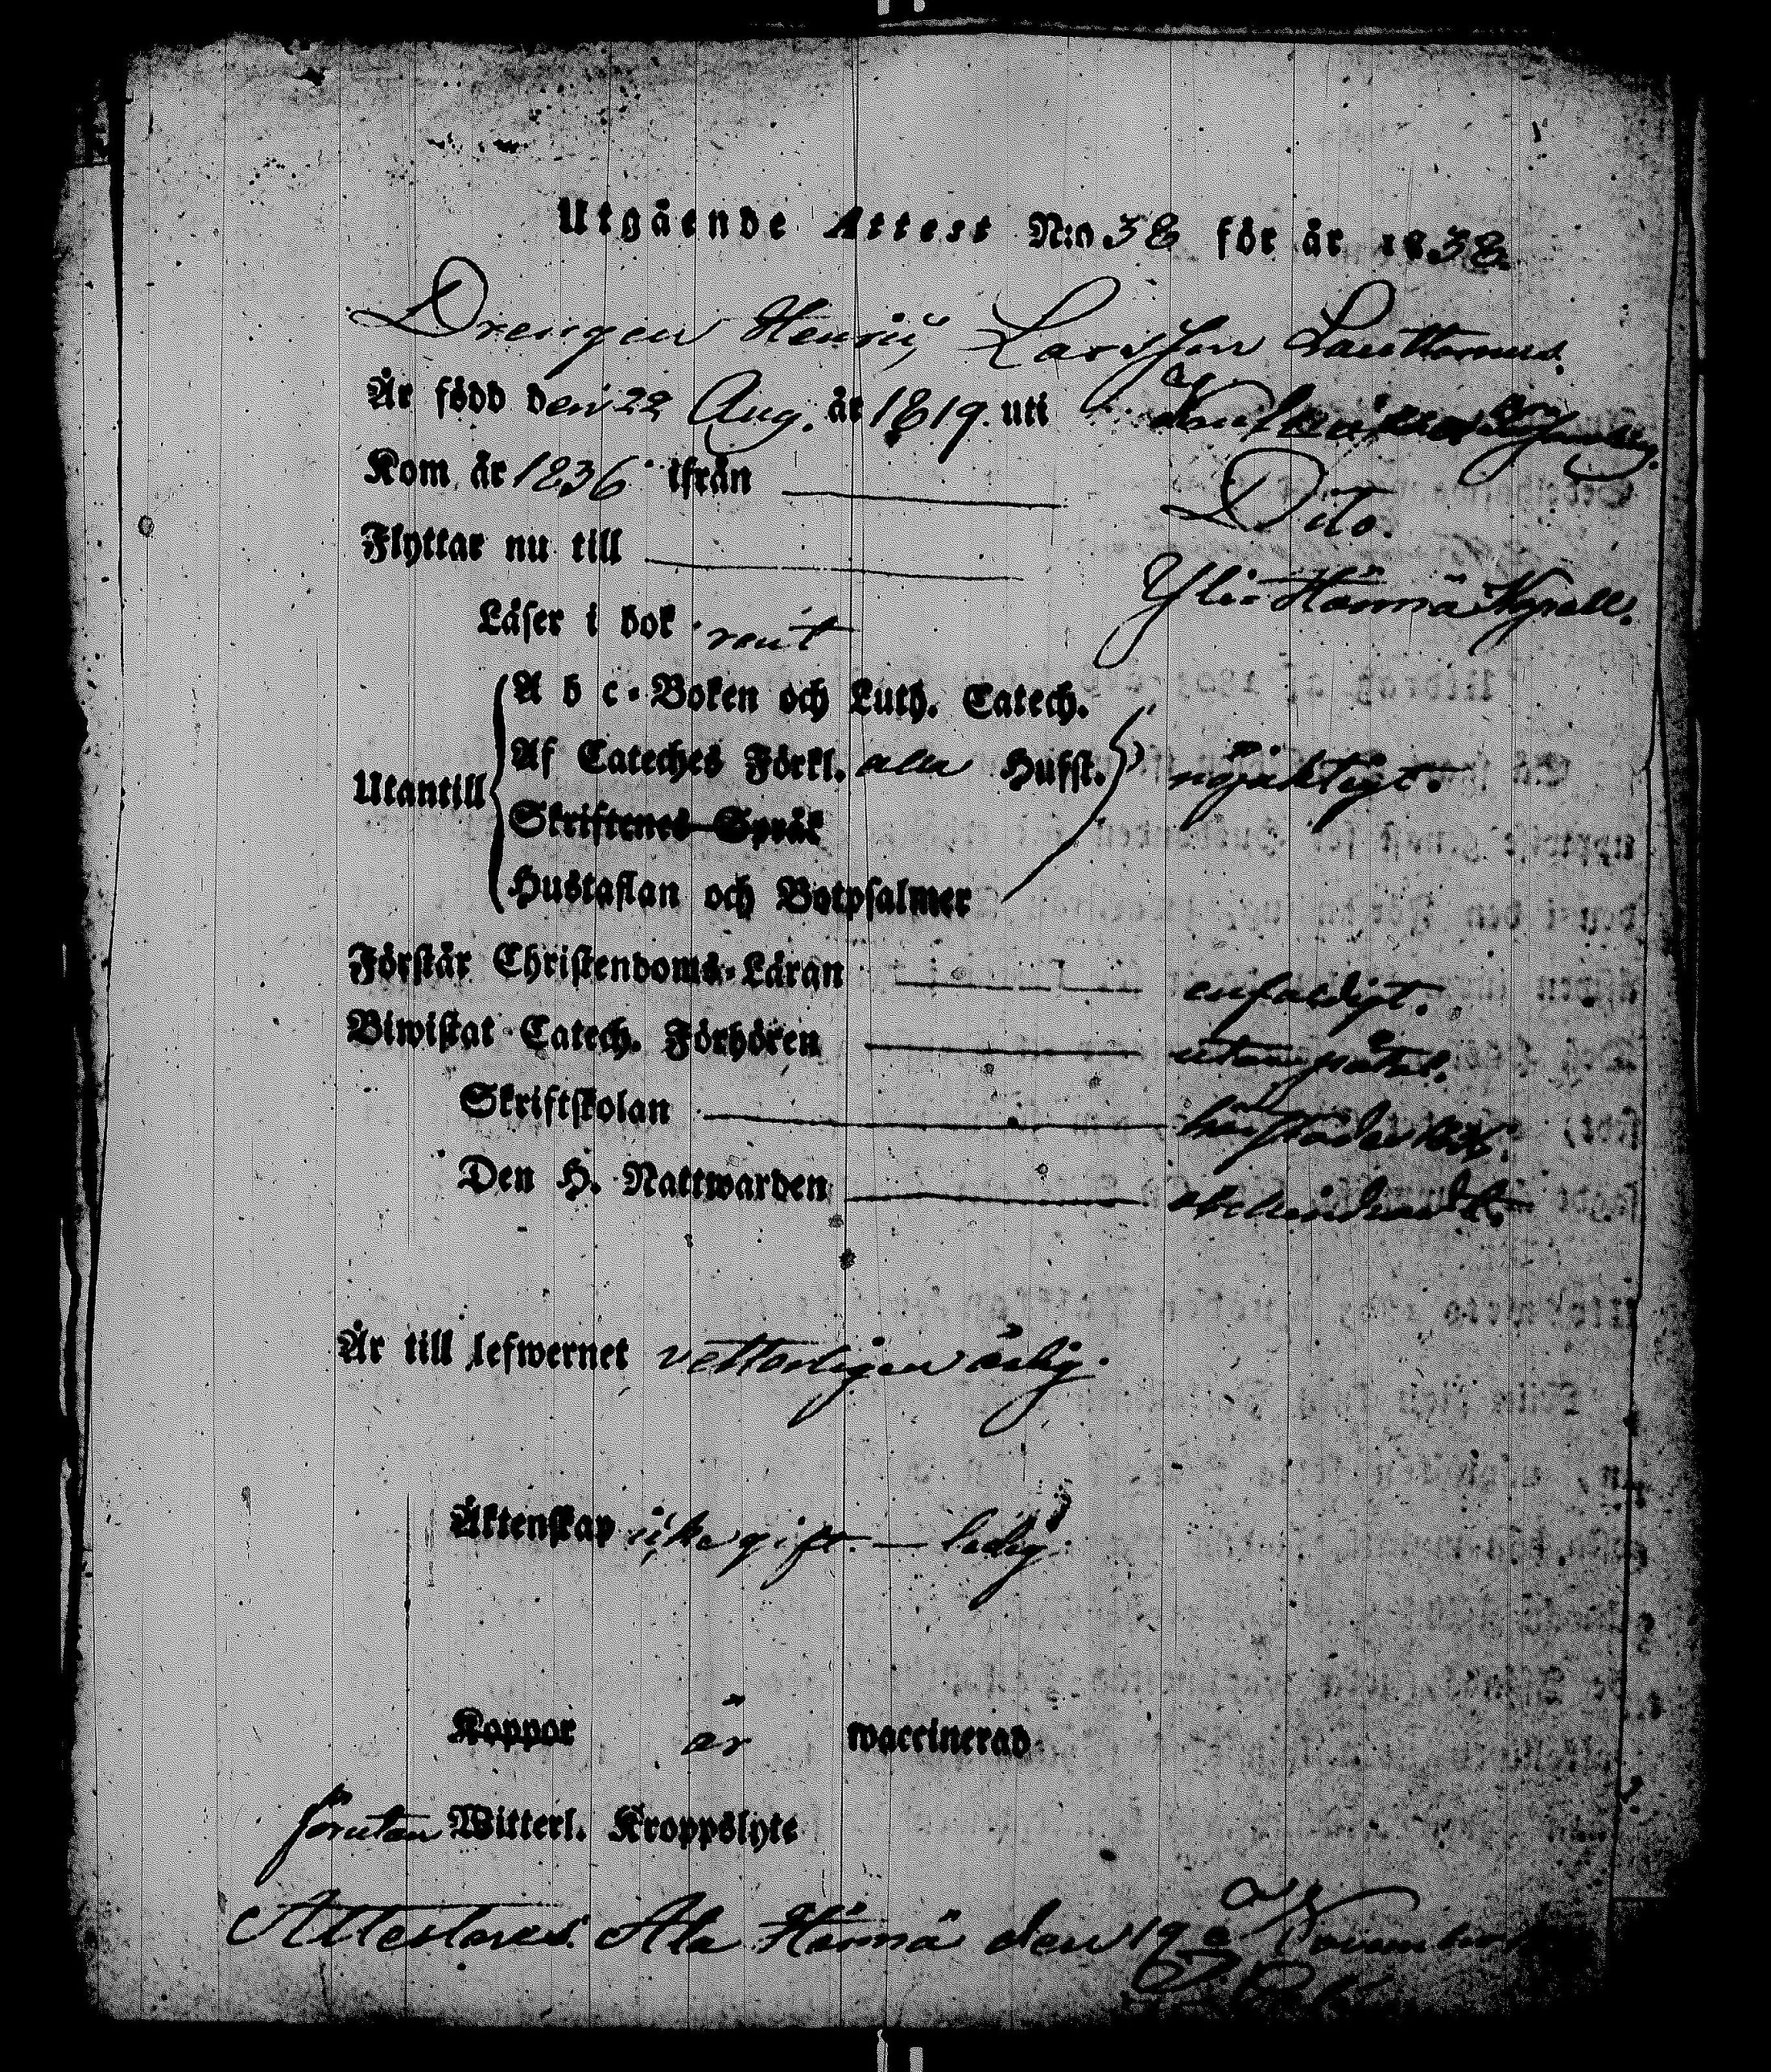 Utgående Attest N:o 38 för år 1838.
Drengen Henric Larsson Lauttamus.
Är född den 22 Aug. år 1819. uti
Kom år 1836 ifrån Dito.
Flyttar nu till Ylihärmä Capell.
Läser i bok rent
A b c-Boken och Luth. Catech.
Af Cateches Förkl. alla Hufst. nöjaktigt.
Utantill
Skriftenes Språk
Hustaflan och Botpsalmer
Förstår Christendoms-Läran enfaldigt.
Biwistat Catech. Förhören utan påtal.
Skriftskolan
Den H. Nattwarden obehindradt.
Är till lefwernet vetterligen ärlig.
Äktenskap icke gift — ledig
Koppor är waccinerad
förutan Witterl. Kroppslyte
Attesteras. Ala Härmä den 19 November